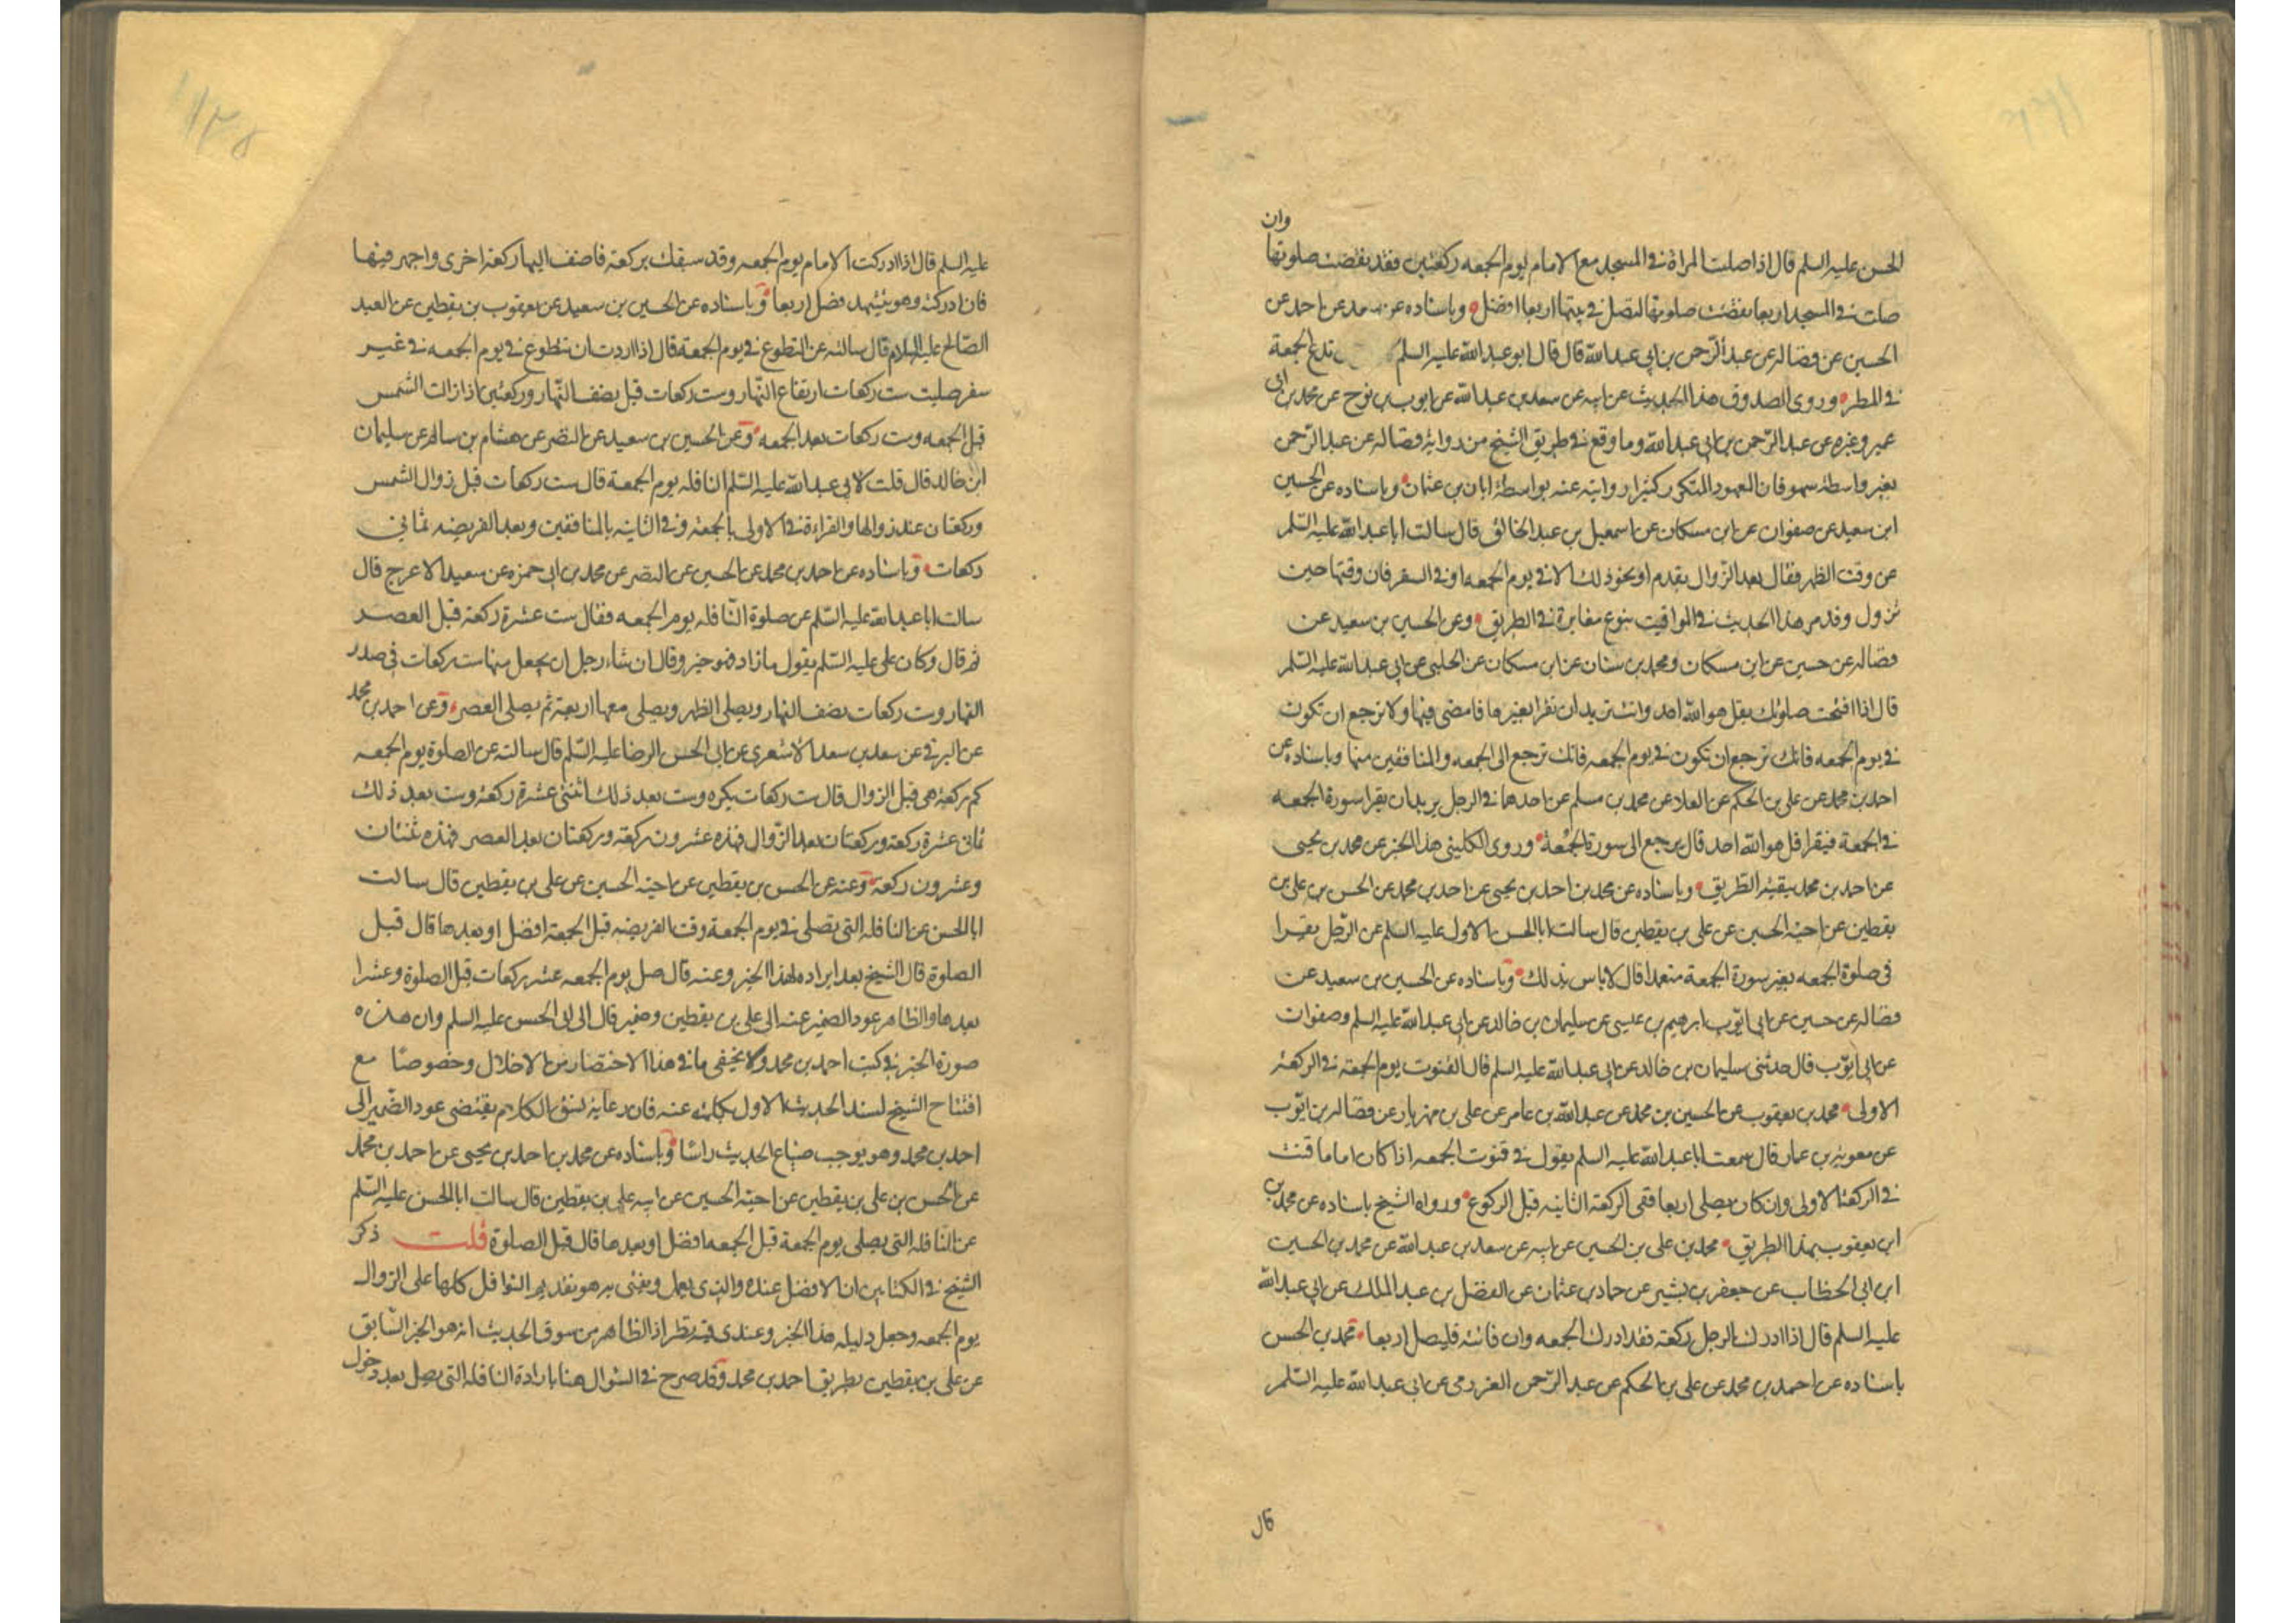 وان
الحسن عليه السلم قال اذا صلت المراة في المسجد مع الامام يوم الجمعه ركعتين فقد نقضت صلوتها
صلت في المسجد اربعا نقضت صلوتها لتصل في بيتها اربعا افضل وباسناده عن سعد عن احمد عن
الحسين عن فضاله عن عبد الرحمن بن ابي عبد الله قال قال ابو عبد الله عليه السلم تدع الجمعة
في المطر وروى الصدوق هذا الحديث عن ابيه عن سعد بن عبد الله عن ايوب بن نوح عن محمد بن ابي
عمير وغيره عن عبد الرحمن بن ابي عبد الله وما وقع في طريق الشيخ من رواية فضاله عن عبد الرحمن
بغير واسطة سهو فان المعهود المتكرر كثيرا روايته عنه بواسطة ابان بن عثمان وباسناده عن الحسين
ابن سعيد عن صفوان عن ابن مسكان عن اسمعيل بن عبد الخالق قال سالت ابا عبد الله عليه السلم
عن وقت الظهر فقال بعد الزوال بقدم او نحو ذلك الا في يوم الجمعه او في السفر فان وقتها حين
تزول وقد مر هذا الحديث في المواقيت بنوع مغايرة في الطريق وعن الحسين بن سعيد عن
فضاله عن حسين عن ابن مسكان ومحمد بن سنان عن ابن مسكان عن الحلبي عن ابي عبد الله عليه السلم
قال اذا افتحت صلوتك بقل هو الله احد وانت تريد ان تقرا بغيرها فامض فيها ولا ترجع ان تكون
في يوم الجمعه فانك ترجع ان تكون في يوم الجمعه فانك ترجع الى الجمعه والمنافقين منها وباسناده عن
احمد بن محمد عن علي بن الحكم عن العلا عن محمد بن مسلم عن احدهما في الرجل يريد ان يقرا سورة الجمعه
في الجمعة فيقرا قل هو الله احد قال يرجع الى سورة الجمعة وروى الكليني هذا الخبر عن محمد بن يحيى
عن احمد بن محمد ببقية الطريق وباسناده عن محمد بن احمد بن يحيى عن احمد بن محمد عن الحسن بن علي بن
يقطين عن اخيه الحسين عن علي بن يقطين قال سالت ابا الحسن الاول عليه السلم عن الرجل يقرا
في صلوة الجمعه بغير سورة الجمعة متعمدا قال لا باس بذلك وباسناده عن الحسين بن سعيد عن
فضاله عن حسين عن ابي ايوب ابرهيم بن عيسى عن سليمان بن خالد عن ابي عبد الله عليه السلم وصفوان
عن ابي ايوب قال حدثني سليمان بن خالد عن ابي عبد الله عليه السلم قال القنوت يوم الجمعة في الركعة
الاولى محمد بن يعقوب عن الحسين بن محمد عن عبد الله بن عامر عن علي بن مهزيار عن فضاله بن ايوب
عن معوية بن عمار قال سمعت ابا عبد الله عليه السلم يقول في قنوت الجمعه اذا كان اماما قنت
في الركعة الاولى وان كان يصلي اربعا ففي الركعة الثانيه قبل الركوع ورواه الشيخ باسناده عن محمد بن
ابن يعقوب بهذا الطريق محمد بن علي بن الحسين عن ابيه عن سعد بن عبد الله عن محمد بن الحسين
ابن ابي الخطاب عن جعفر بن بشير عن حماد بن عثمان عن الفضل بن عبد الملك عن ابي عبد الله
عليه السلم قال اذا ادرك الرجل ركعة فقد ادرك الجمعه وان فاتته فليصل اربعا محمد بن الحسن
باسناده عن احمد بن محمد عن علي بن الحكم عن عبد الرحمن العزرمي عن ابي عبد الله عليه السلم
قال
عليه السلم قال اذا ادركت الامام يوم الجمعه وقد سبقك بركعة فاضف اليها ركعة اخرى واجهر فيها
فان ادركته وهو يتشهد فصل اربعا وباسناده عن الحسين بن سعيد عن يعقوب بن يقطين عن العبد
الصالح عليه السلام قال سالته عن التطوع في يوم الجمعة قال اذا اردت ان تتطوع في يوم الجمعه في غير
سفر صليت ست ركعات ارتفاع النهار وست ركعات قبل نصف النهار وركعتين اذا زالت الشمس
قبل الجمعه وست ركعات بعد الجمعه وعن الحسين بن سعيد عن النضر عن هشام بن سالم عن سليمان
ابن خالد قال قلت لابي عبد الله عليه السلم النافله يوم الجمعة قال ست ركعات قبل زوال الشمس
وركعتان عند زوالها والقراءة في الاولى بالجمعه وفي الثانيه بالمنافقين وبعد الفريضه ثماني
ركعات وباسناده عن احمد بن محمد عن الحسين عن النضر عن محمد بن ابي حمزه عن سعيد الاعرج قال
سالت ابا عبد الله عليه السلم عن صلوة النافله يوم الجمعه فقال ست عشرة ركعة قبل العصر
ثم قال وكان علي عليه السلم يقول ما زاد فهو خير وقال ان شاء رجل ان يجعل منها ست ركعات في صدر
النهار وست ركعات نصف النهار ويصلي الظهر ويصلي معها اربعة ثم يصلي العصر وعن احمد بن محمد
عن البرقي عن سعد بن سعد الاشعري عن ابي الحسن الرضا عليه السلم قال سالته عن الصلوة يوم الجمعه
كم ركعة هي قبل الزوال قال ست ركعات بكره وست بعد ذلك اثنتى عشرة ركعة وست بعد ذلك
ثماني عشرة ركعة وركعتان بعد الزوال فهذه عشرون ركعة وركعتان بعد العصر فهذه ثنتان
وعشرون ركعة وعنه عن الحسن بن يقطين عن اخيه الحسين عن علي بن يقطين قال سالت
ابا الحسن عن النافله التي تصلى في يوم الجمعة وقت الفريضه قبل الجمعة افضل او بعدها قال قبل
الصلوة قال الشيخ بعد ايراده لهذا الخبر وعنه قال صل يوم الجمعه عشر ركعات قبل الصلوة وعشرا
بعدها والظاهر عود الضمير عنه الى علي بن يقطين وضمير قال الى ابي الحسن عليه السلم وان هذه
صورة الخبر في كتب احمد بن محمد ولا يخفى ما في هذا الاختصار من الاخلال وخصوصا مع
افتتاح الشيخ لسند الحديث الاول بكلمة عنه فان رعاية لنسق الكلام يقتضي عود الضمير الى
احمد بن محمد وهو يوجب ضياع الحديث راسا وباسناده عن محمد بن احمد بن يحيى عن احمد بن محمد
عن الحسن بن علي بن يقطين عن اخيه الحسين عن ابيه علي بن يقطين قال سالت ابا الحسن عليه السلم
عن النافله التي يصلى يوم الجمعة قبل الجمعه افضل او بعدها قال قبل الصلوة قلت ذكر
الشيخ في الكتابين ان الافضل عنده والذي يعمل ويفتى به هو تقديم النوافل كلها على الزوال
يوم الجمعه وجعل دليله هذا الخبر وعندي فيه نظر اذ الظاهر من سوق الحديث انه هو الخبر السابق
عن علي بن يقطين بطريق احمد بن محمد وقد صرح في السؤال هنا بارادة النافله التي يصل بعد دخول